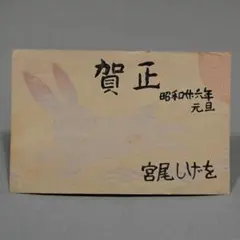 賀正
昭和廿六年
元旦
宮尾しげを